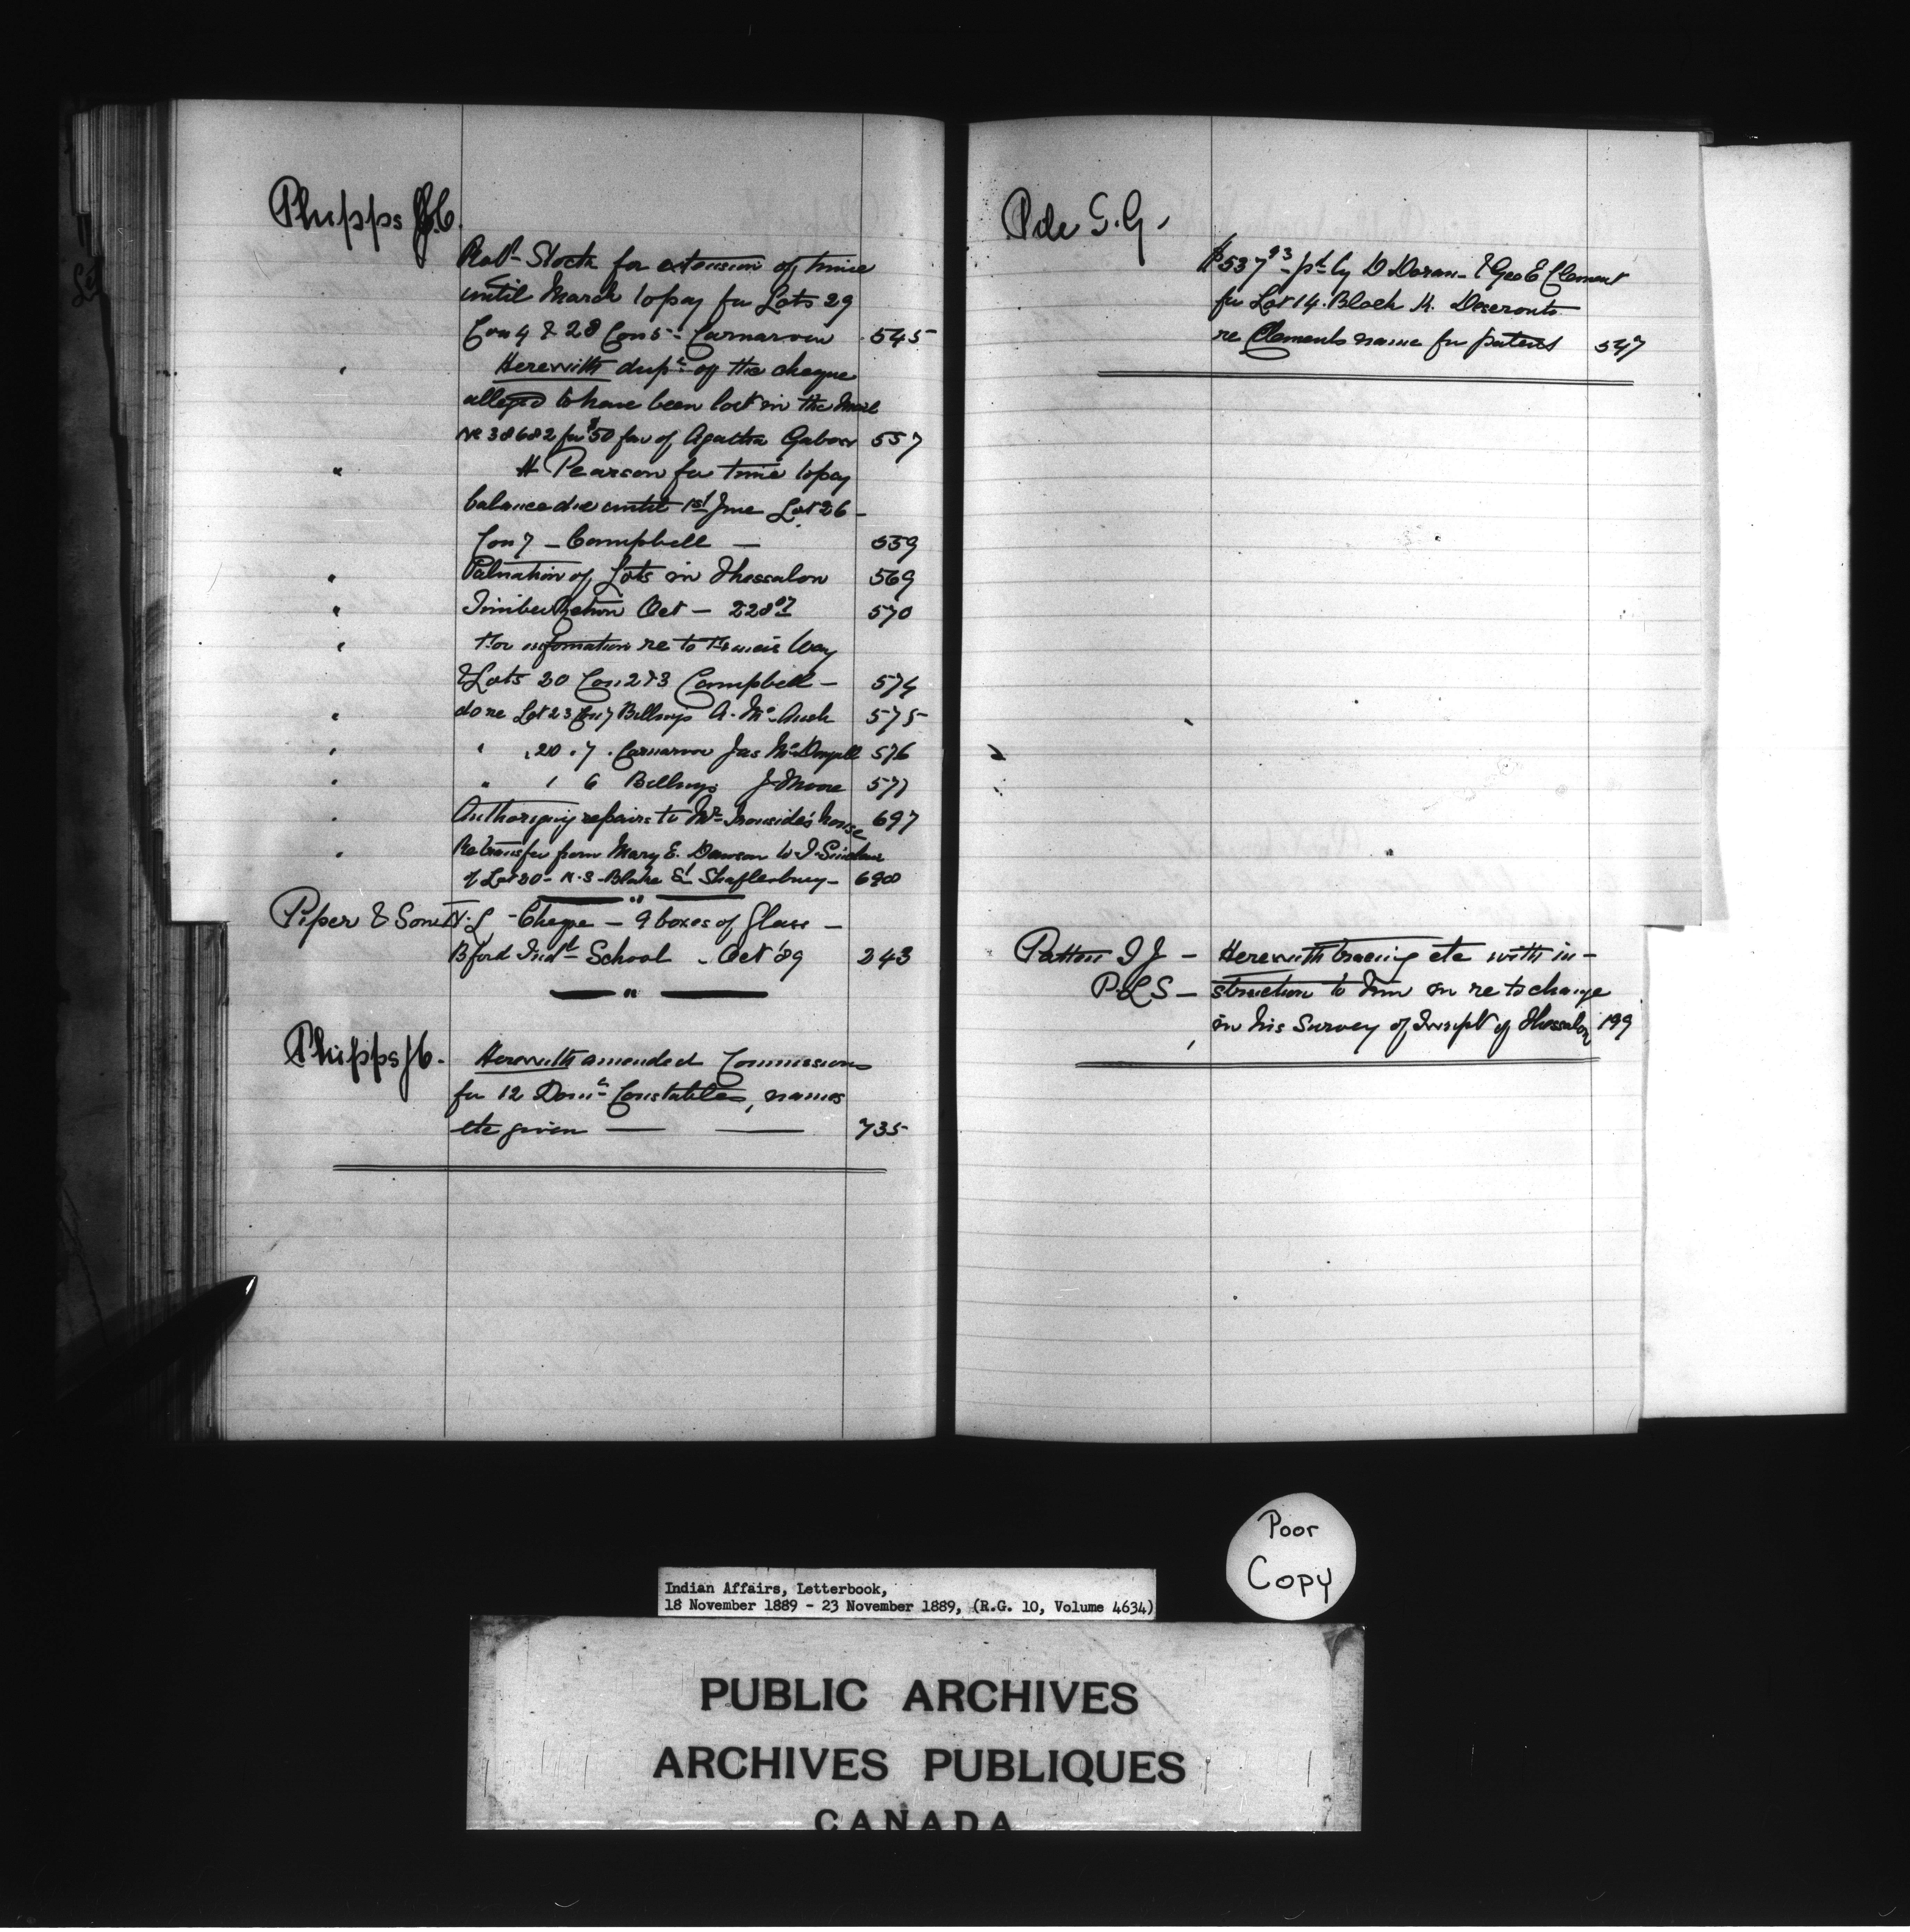 Phipps J.C.
Robt Stocks for extension of time
until March to pay for Lots 29
Con 4 & 28 Con 5 - Carnarvon 545
" Herewith dupe of the cheque
alleged to have been lost in the Mail
No 38682 for $50 fav of Agatha 557
" H Pearson for time to pay
balance due until 1st June Lot 26 -
Con 7 - Campbell - 559
" Valuation of Lots in Thessalon 569
" Timber Return Oct - 228 07 570
" For information re to
& Lots 30 Con 2 & 3 Campbell - 574
" do re Lot 23 Con 7 Billings A. Mc 575
" " 20 . 7 . Carnarvon Jas McDougall 576
" " 1 6 Billings J Moore 577
" Authorizing repairs to Mr Ironside's house 697
" Re transfer from Mary E. Dawson to J. Sinclair
of Lot 30 - N.S. Blake St Shaftesbury - 690
Piper & Son N.L - Cheque - 9 boxes of Glass -
Bford Indl School - Oct '89 243
"
Phipps J C. Herewith amended Commissions
for 12 Domn Constables, names
etc given — — 735
Pole G.G.
$537 93 - pd by D Doran - & Geo E Clement
for Lot 14. Block K. Deseronto
re Clements name for patent 547
Patton I J - Herewith tracing etc with in-
P.L.S - struction to him in re to change
in his Survey of Townplt of Thessalon 199
Poor
Copy
Indian Affairs, Letterbook,
18 November 1889 - 23 November 1889, (R.G. 10, Volume 4634)
PUBLIC ARCHIVES
ARCHIVES PUBLIQUES
CANADA